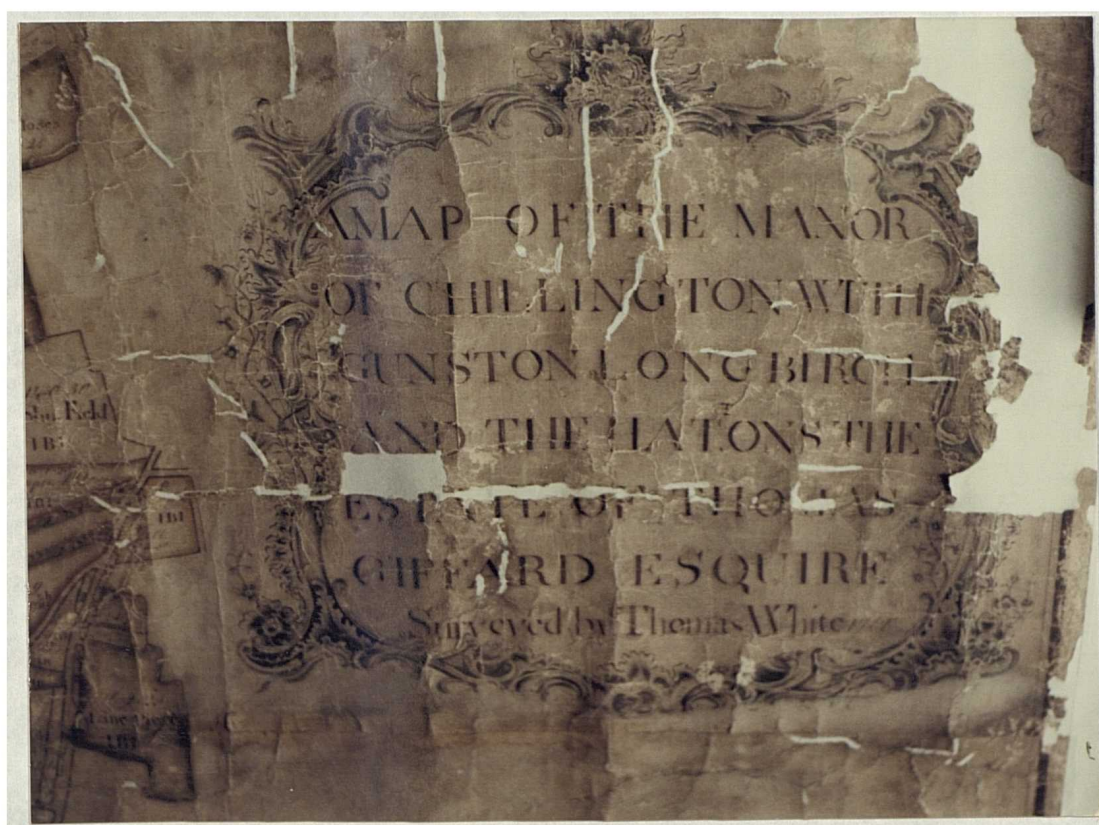 A MAP OF THE MANOR
OF CHILLINGTON WITH
GUNSTON LONG BIRCH
AND THE HATTONS THE
ESTATE OF THOMAS
GIFFARD ESQUIRE
Surveyed by Thomas White
Field
LB
LB1
LB1